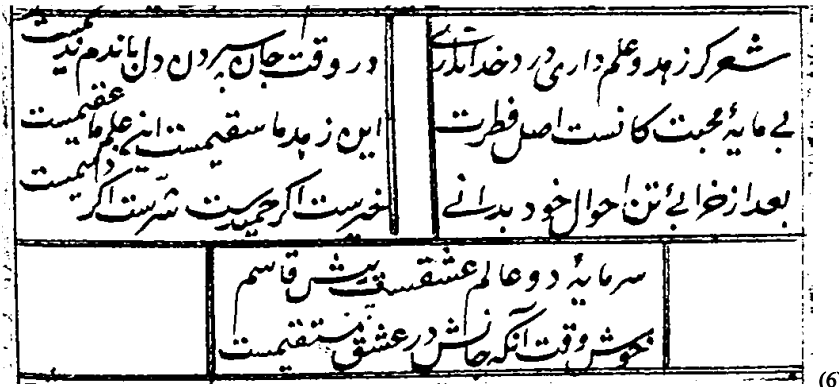 شعر کر زهد و علم داری درد خدا نداری در وقت جان سپردن دل باندم ندیمست
بے مایهٔ محبت کانست اصل فطرت این زهد ما سقیمست این علم ما عقیمست
بعد از خرابئ تن احوال خود بدانے خیرست اکر حمیدست شرست اکر ذمیمست
سرمایهٔ دو عالم عشقست پیش قاسم
خوش وقت آنکه جانش در عشق مستقیمست
(6